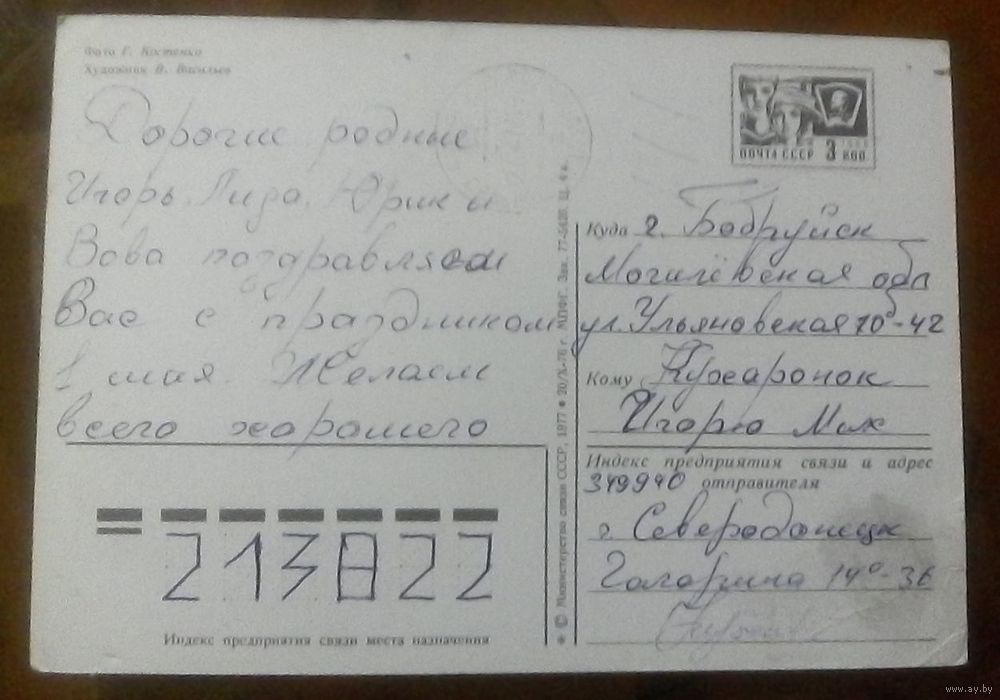 Фото Г. Костенко
Художник В. Васильев
Дорогие родные
Игорь, Лида, Юрик и
Вова поздравляем
Вас с праздником
1 мая. Желаем
всего харошего
213822
Индекс предприятия связи места назначения
© Министерство связи СССР, 1977 ● 20/X-76 г. МПФГ. Зак. 77-5420. Ц. 4 к.
ПОЧТА СССР 3 КОП.
Куда г. Бобруйск
Могилёвская обл
ул. Ульяновская 70б-42
Кому Кухаронок
Игорю Мих
Индекс предприятия связи и адрес
349940 отправителя
г. Северодонецк
Гагарина 14а-36
www.ay.by